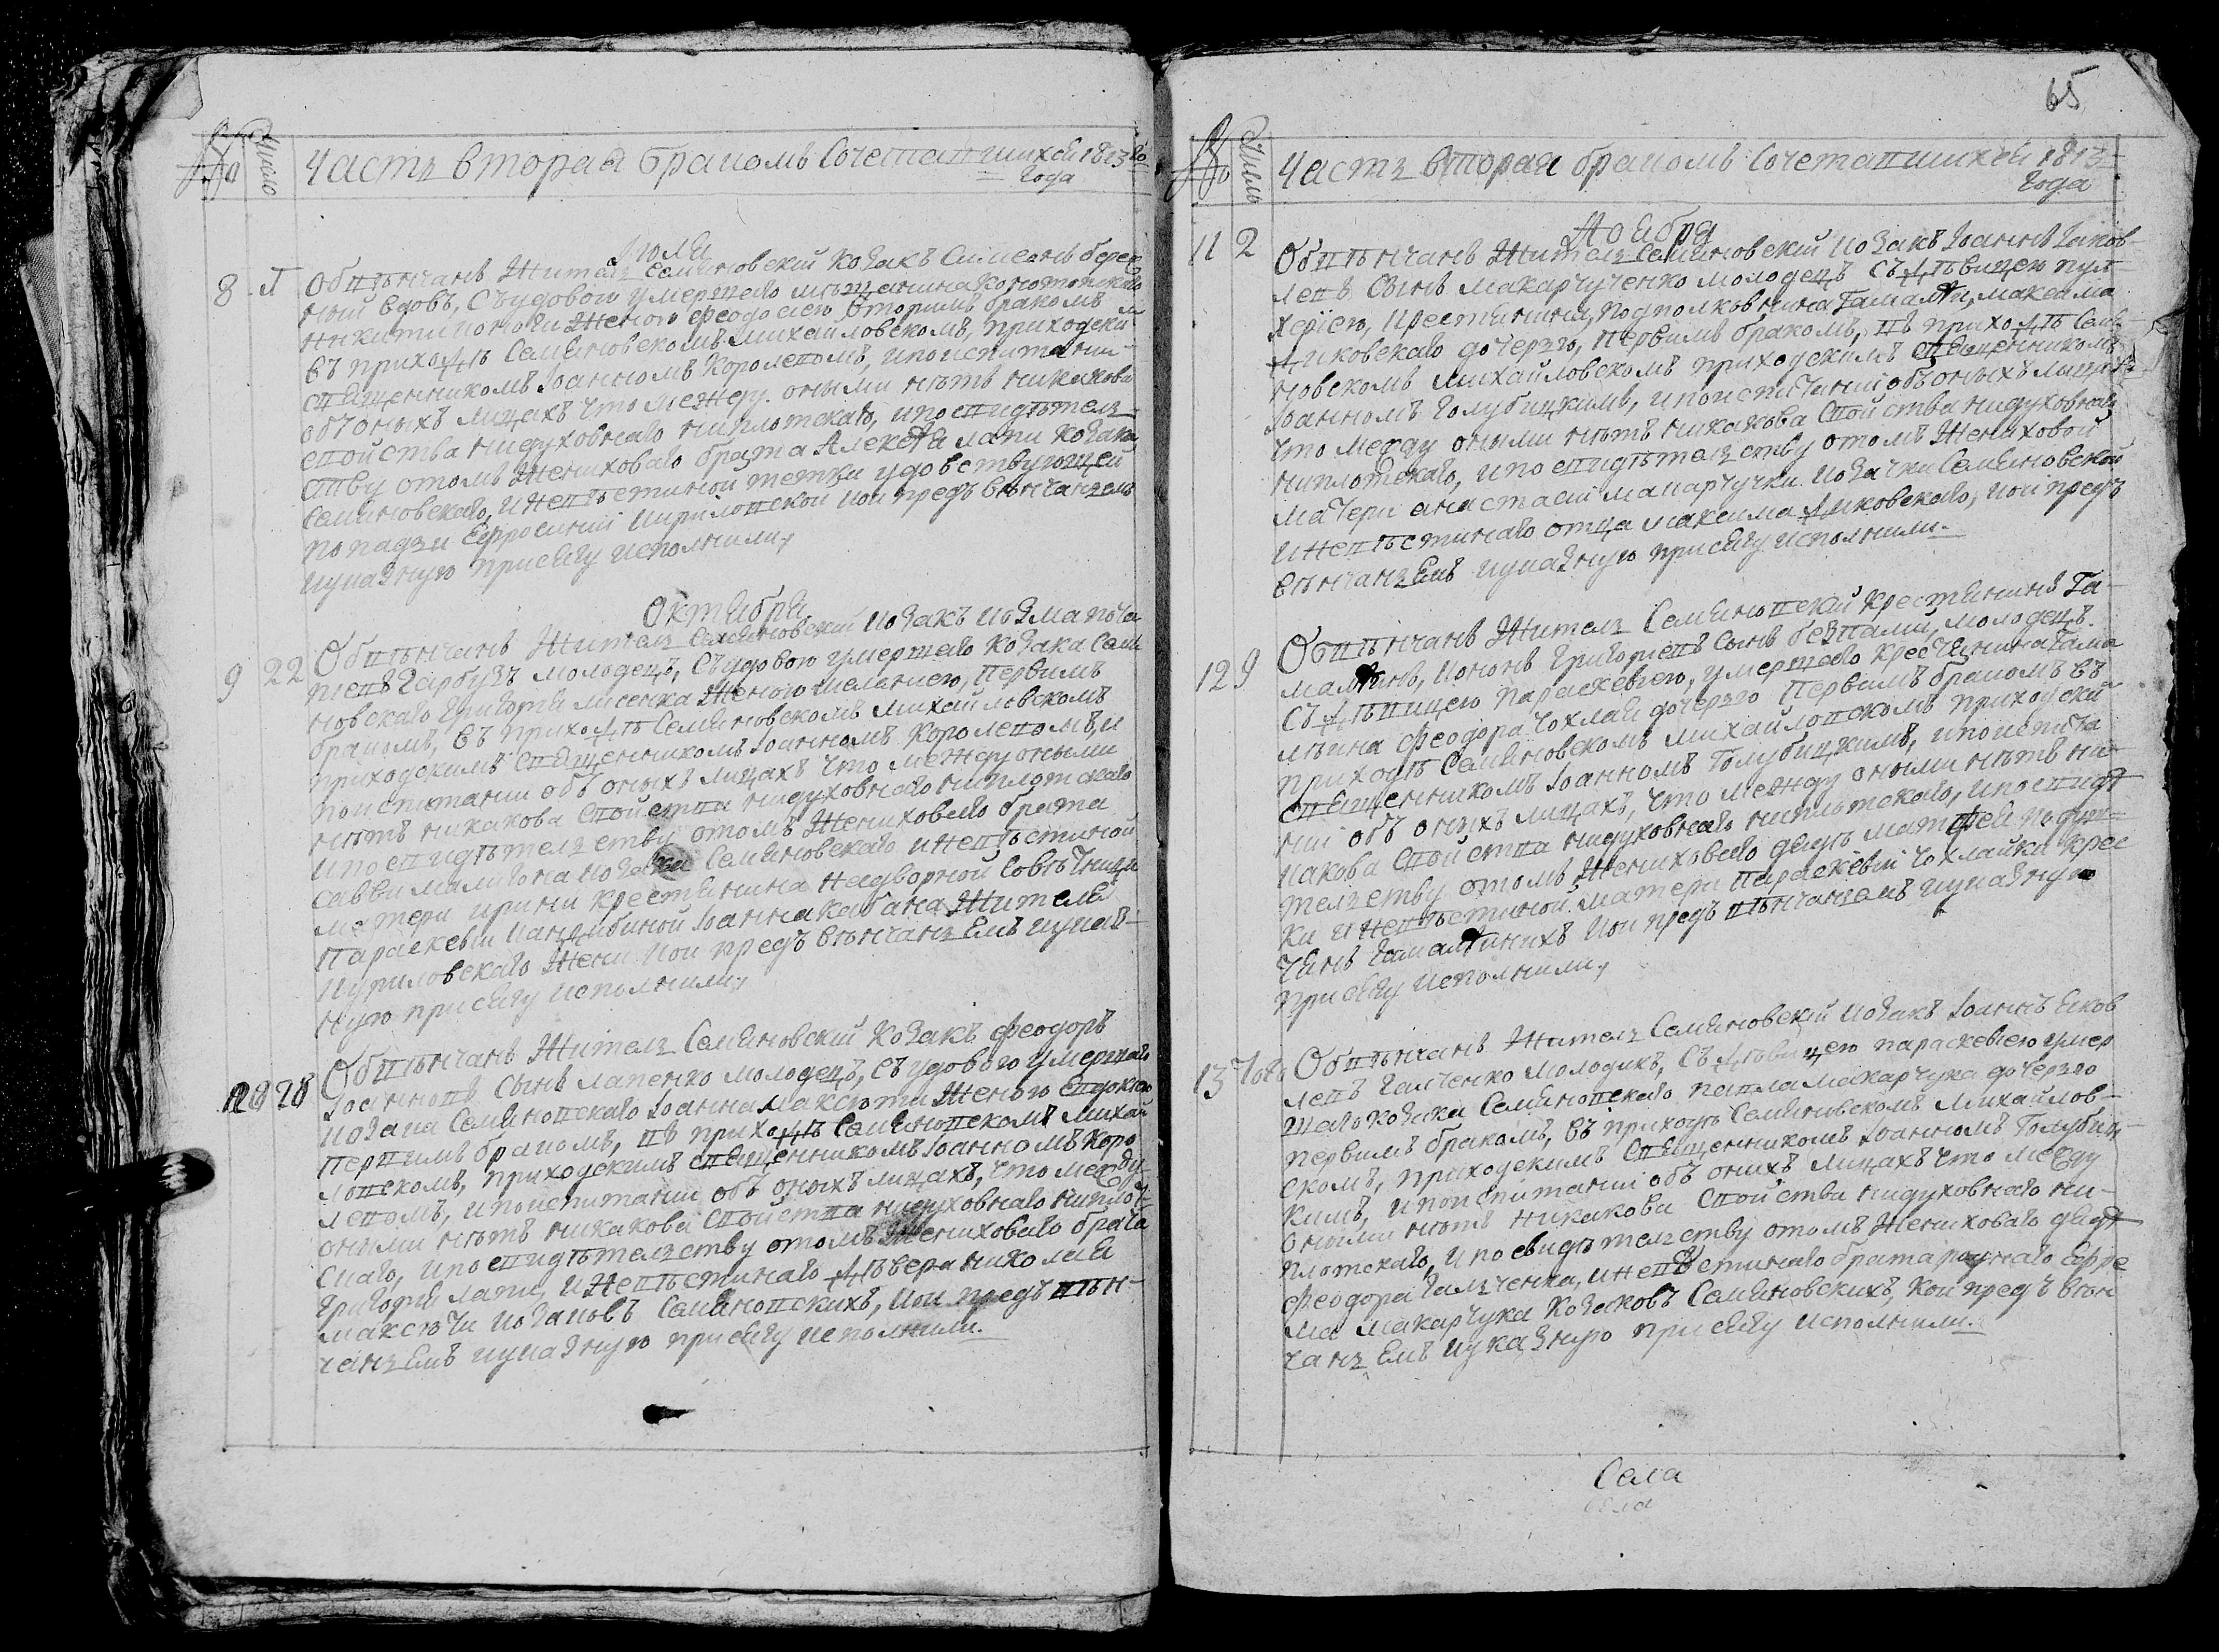 № Число Часть вторая бракомъ Сочетавшихся 1813го
Года
Июля
8 Обвѣнчанъ Житель Семяновский козакъ Симеонъ берез
ний вдовъ, Съудовою умершаго мѣщанина конотопскаго
женою феодосиею вторимъ бракомъ
въ приходѣ Семяновскомъ михайловскомъ, приходски
священникомъ Iоанномъ Королевомъ, ипоиспитании
обонихъ лицахъ что между оными нѣтъ никакова
свойства нидуховнаго ниплотскаго, ипосвидѣтель
ству отомъ Жениховаго брата Алексѣя козака
Семяновскаго, иневѣстиной тетки удовствующей
попадьи Ефросинiи Кириловской кои предъ вѣнчанъемъ
иуказную присягу исполнили,
Октября
9 22 Обвѣнчанъ Житель Семяновский козакъ козма
Гарбузъ молодецъ, Съудовою умершаго козака Семя
новскаго Григория лисенка Женою меланиею, первимъ
бракомъ, въ приходѣ Семяновскомъ михайловскомъ
приходскимъ священникомъ Iоанномъ Королевомъ, и
поиспитании объ оныхъ лицахъ что между оными
нѣтъ никакова свойства нидуховнаго ниплотскаго
ипосвидѣтельству отомъ Жениховаго брата
савви козака Семяновскаго иневѣстиной
матери ирини крестянина надворной совѣтници
Параскевiи Iоанна кабана Жителя
Кириловскаго Жени кои предъ вѣнчанъемъ иуказ-
ную присягу исполнили,
10 28 Обвѣнчанъ Житель Семяновский козакъ феодоръ
Iоанновъ Сынъ лапенко молодецъ, Съудовою умершаго
козака Семяновскаго Iоанна Максюти Женою Евдокиею
первимъ бракомъ, въ приходѣ Семяновскомъ михай
ловскомъ, приходскимъ священникомъ Iоанномъ Коро
левомъ, ипоиспитании объ оныхъ лицахъ, что между
оними нѣтъ никакова свойства нидуховнаго ниплот-
скаго, ипосвидѣтельству отомъ Жениховаго брата
Григория лапи, иневѣстинаго деверя николая
максюти козаковъ Семяновскихъ, кои предъ вѣн-
чанъемъ иуказную присягу исполнили.
65
№ Число Часть вторая бракомъ Сочетавшихся 1813
Года
Ноября
11 2 Обвѣнчанъ Житель Семяновский козакъ Iоаннъ Iаков-
левъ Сынъ макарчученко молодецъ съдѣвицею пул-
херiею, крестянина, подполковника Гамалѣи, максима
дочерью, первимъ бракомъ, въ приходѣ Семя
новскомъ михайловскомъ приходскимъ священникомъ
Iоанномъ Голубицкимъ, ипоиспитанiи объоныхъ лицахъ
что между оными нѣтъ никакова свойства нидуховнаго
ниплотскаго, ипосвидѣтельству отомъ Жениховой
матери анастасiи макарчучки козачки Семяновской
иневѣстинаго отца максима кои предъ
вѣнчанъемъ иуказную присягу исполнили.
12 9 Обвѣнчанъ Житель Семяновский крестянинъ Га-
малѣинъ, кононъ Григориевъ Сынъ молодецъ
съдѣвицею параскевiею, умершаго крестянина Гама
лѣина феодора чохлая дочерью первимъ бракомъ въ
приходѣ Семяновскомъ михайловскомъ приходски
священникомъ Iоанномъ Голубицкимъ, ипоиспита
нiи объ онихъ лицахъ, что между оными нѣтъ ни-
какова свойства нидуховнаго ниплотскаго, ипосвидѣ
тельству отомъ Жениховаго дяди матфея
иневѣстиной матери параскевiи чохлайки крес
тянъ Гамалѣинихъ кои предъ вѣнчанъемъ иуказную
присягу исполнили,
13 Тогож Обвѣнчанъ Житель Семяновский козакъ Iоаннъ Яков
левъ Галченко молодикъ, съдѣвицею параскевiею умер
шаго козака Семяновскаго павла макарчука дочерью
первимъ бракомъ, въ приходѣ Семяновскомъ михайлов-
скомъ, приходскимъ священникомъ Iоанномъ Голубиц-
кимъ, ипоиспитанiи объ онихъ лицахъ что между
оними нѣтъ никакова свойства нидуховнаго ни-
плотскаго, ипосвидѣтельству отомъ Жениховаго дяди
феодора Гальченка, иневѣстинаго брата роднаго Ефре
ма макарчука козаковъ Семяновскихъ, кои предъ вѣн
чанъемъ иуказную присягу исполнили.
Села